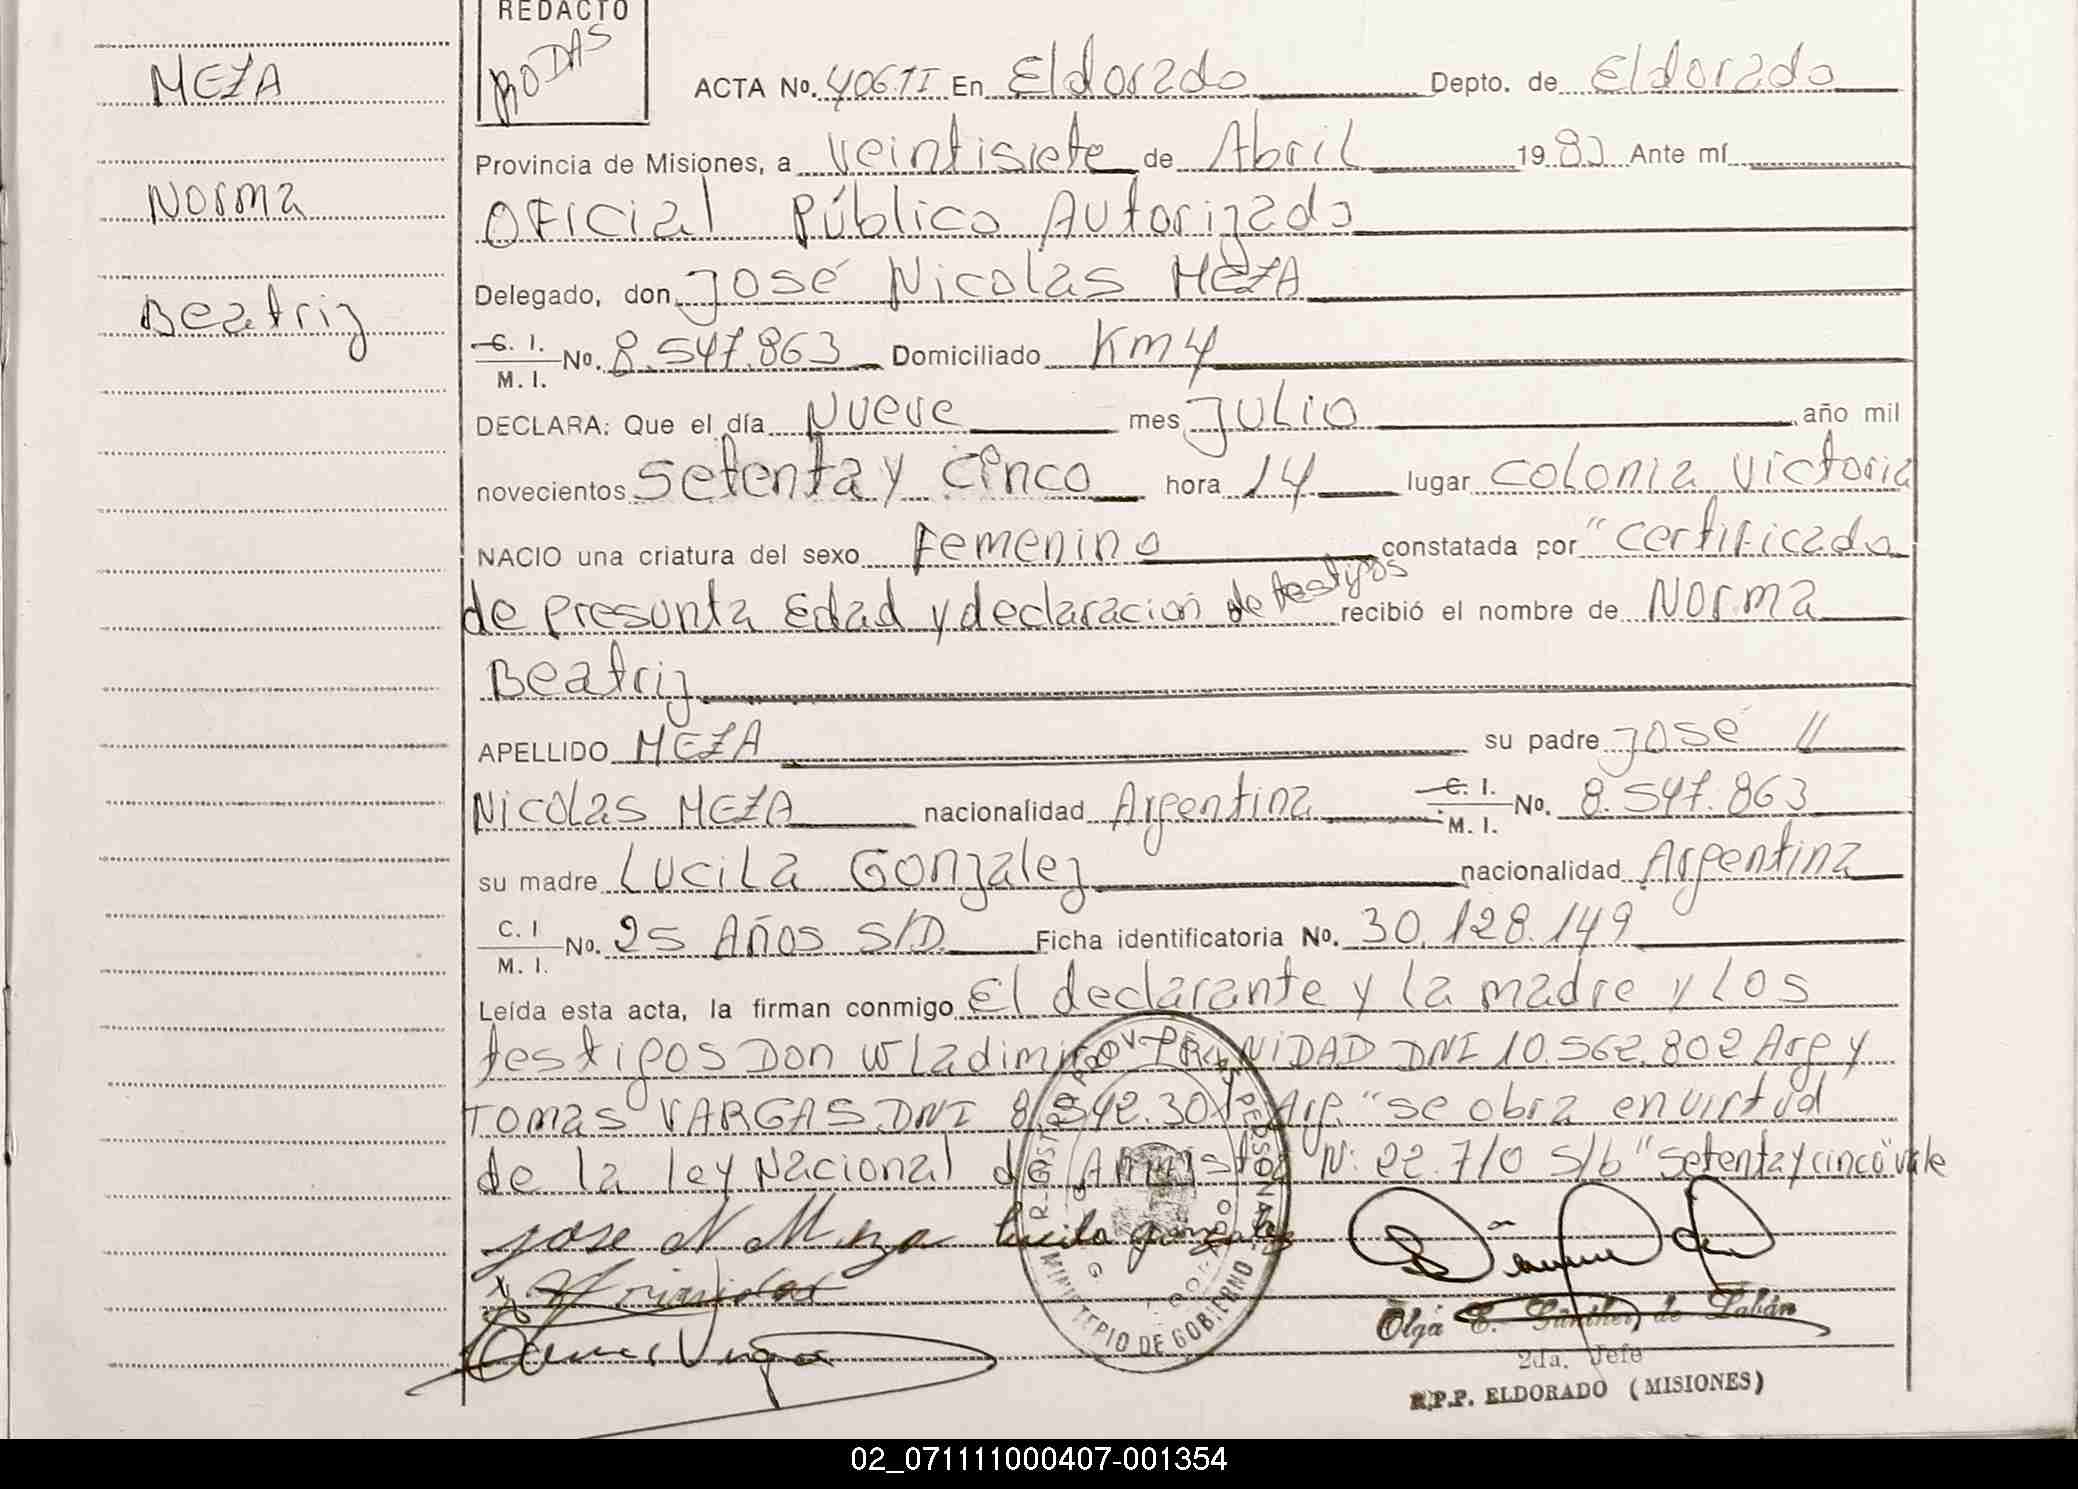 REDACTO
RODAS
MEZA
Norma
Beatriz
ACTA No. 406 TI En Eldorado Depto. de Eldorado
Provincia de Misiones, a veintisiete de Abril 1983 Ante mí
Oficial Público Autorizado
Delegado, don José Nicolas MEZA
C. I.
M. I. No. 8.547.863 Domiciliado Km 4
DECLARA: Que el día Nueve mes Julio año mil
novecientos setenta y cinco hora 14 lugar Colonia Victoria
NACIO una criatura del sexo Femenino constatada por "certificado
de presunta Edad y declaracion de testigos recibió el nombre de Norma
Beatriz
APELLIDO MEZA su padre José //
Nicolas MEZA nacionalidad Argentina C. I. M. I. No. 8.547.863
su madre Lucila Gonzalez nacionalidad Argentina
C. I M. I. No. 25 Años S/D. Ficha identificatoria No. 30.128.149
Leída esta acta, la firman conmigo El declarante y la madre y los
testigos Don Wladimiro TRINIDAD DNI 10.562.802 Arg y
Tomas VARGAS DNI 8.542.301 Arg. "se obra en virtud
de la ley Nacional de Amnistia N: 22.710 s/b "setenta y cinco" vale
Jose N Meza Lucila gonzalez
Trinidad
Vargas
REGISTRO PROV. DE LAS PERSONAS
MINISTERIO DE GOBIERNO
Olga E. Günther de Labán
2da. Jefe
R.P.P. ELDORADO (MISIONES)
02_071111000407-001354